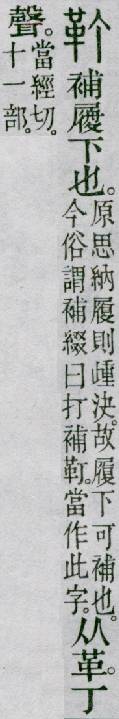 靪 補履下也。
原思納履則踵決。故履下可補也。
今俗謂補綴曰打補靪。當作此字。
从革丁
聲。
當經切。
十一部。